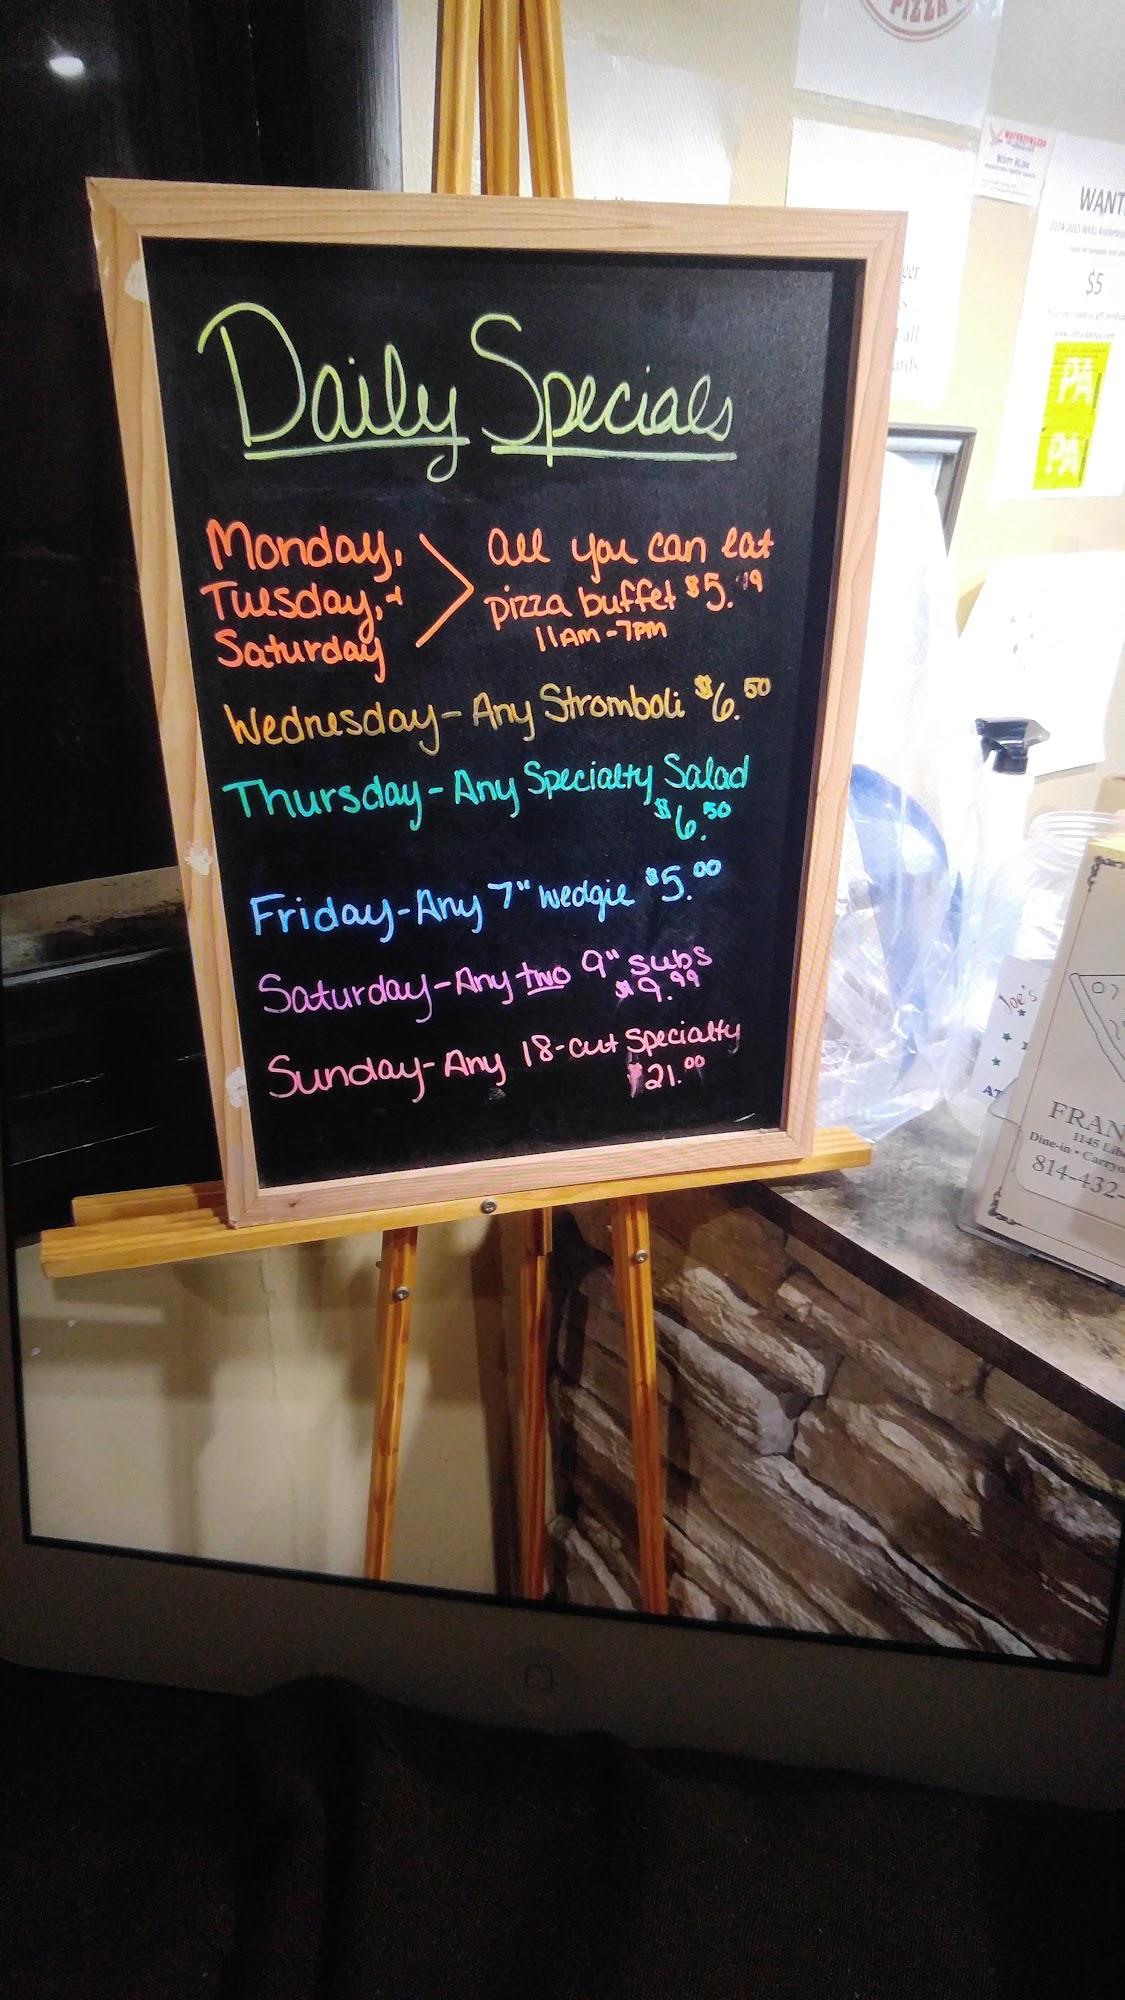 PIZZA
SCOTT BLISS
WANT
$5
PA
PA
Daily Specials
Monday,
Tuesday, +
Saturday
all you can eat
pizza buffet $5.
11AM-7PM
Wednesday- Any Stromboli $6.50
Thursday- Any Specialty Salad
$6.50
Friday-Any 7" wedgie $5.00
Saturday-Any two 9" subs
$9.99
Sunday-Any 18-cut Specialty
$21.00
Joe's
FRAN
1145 Lib
Dine-in • Carryo
814-432-